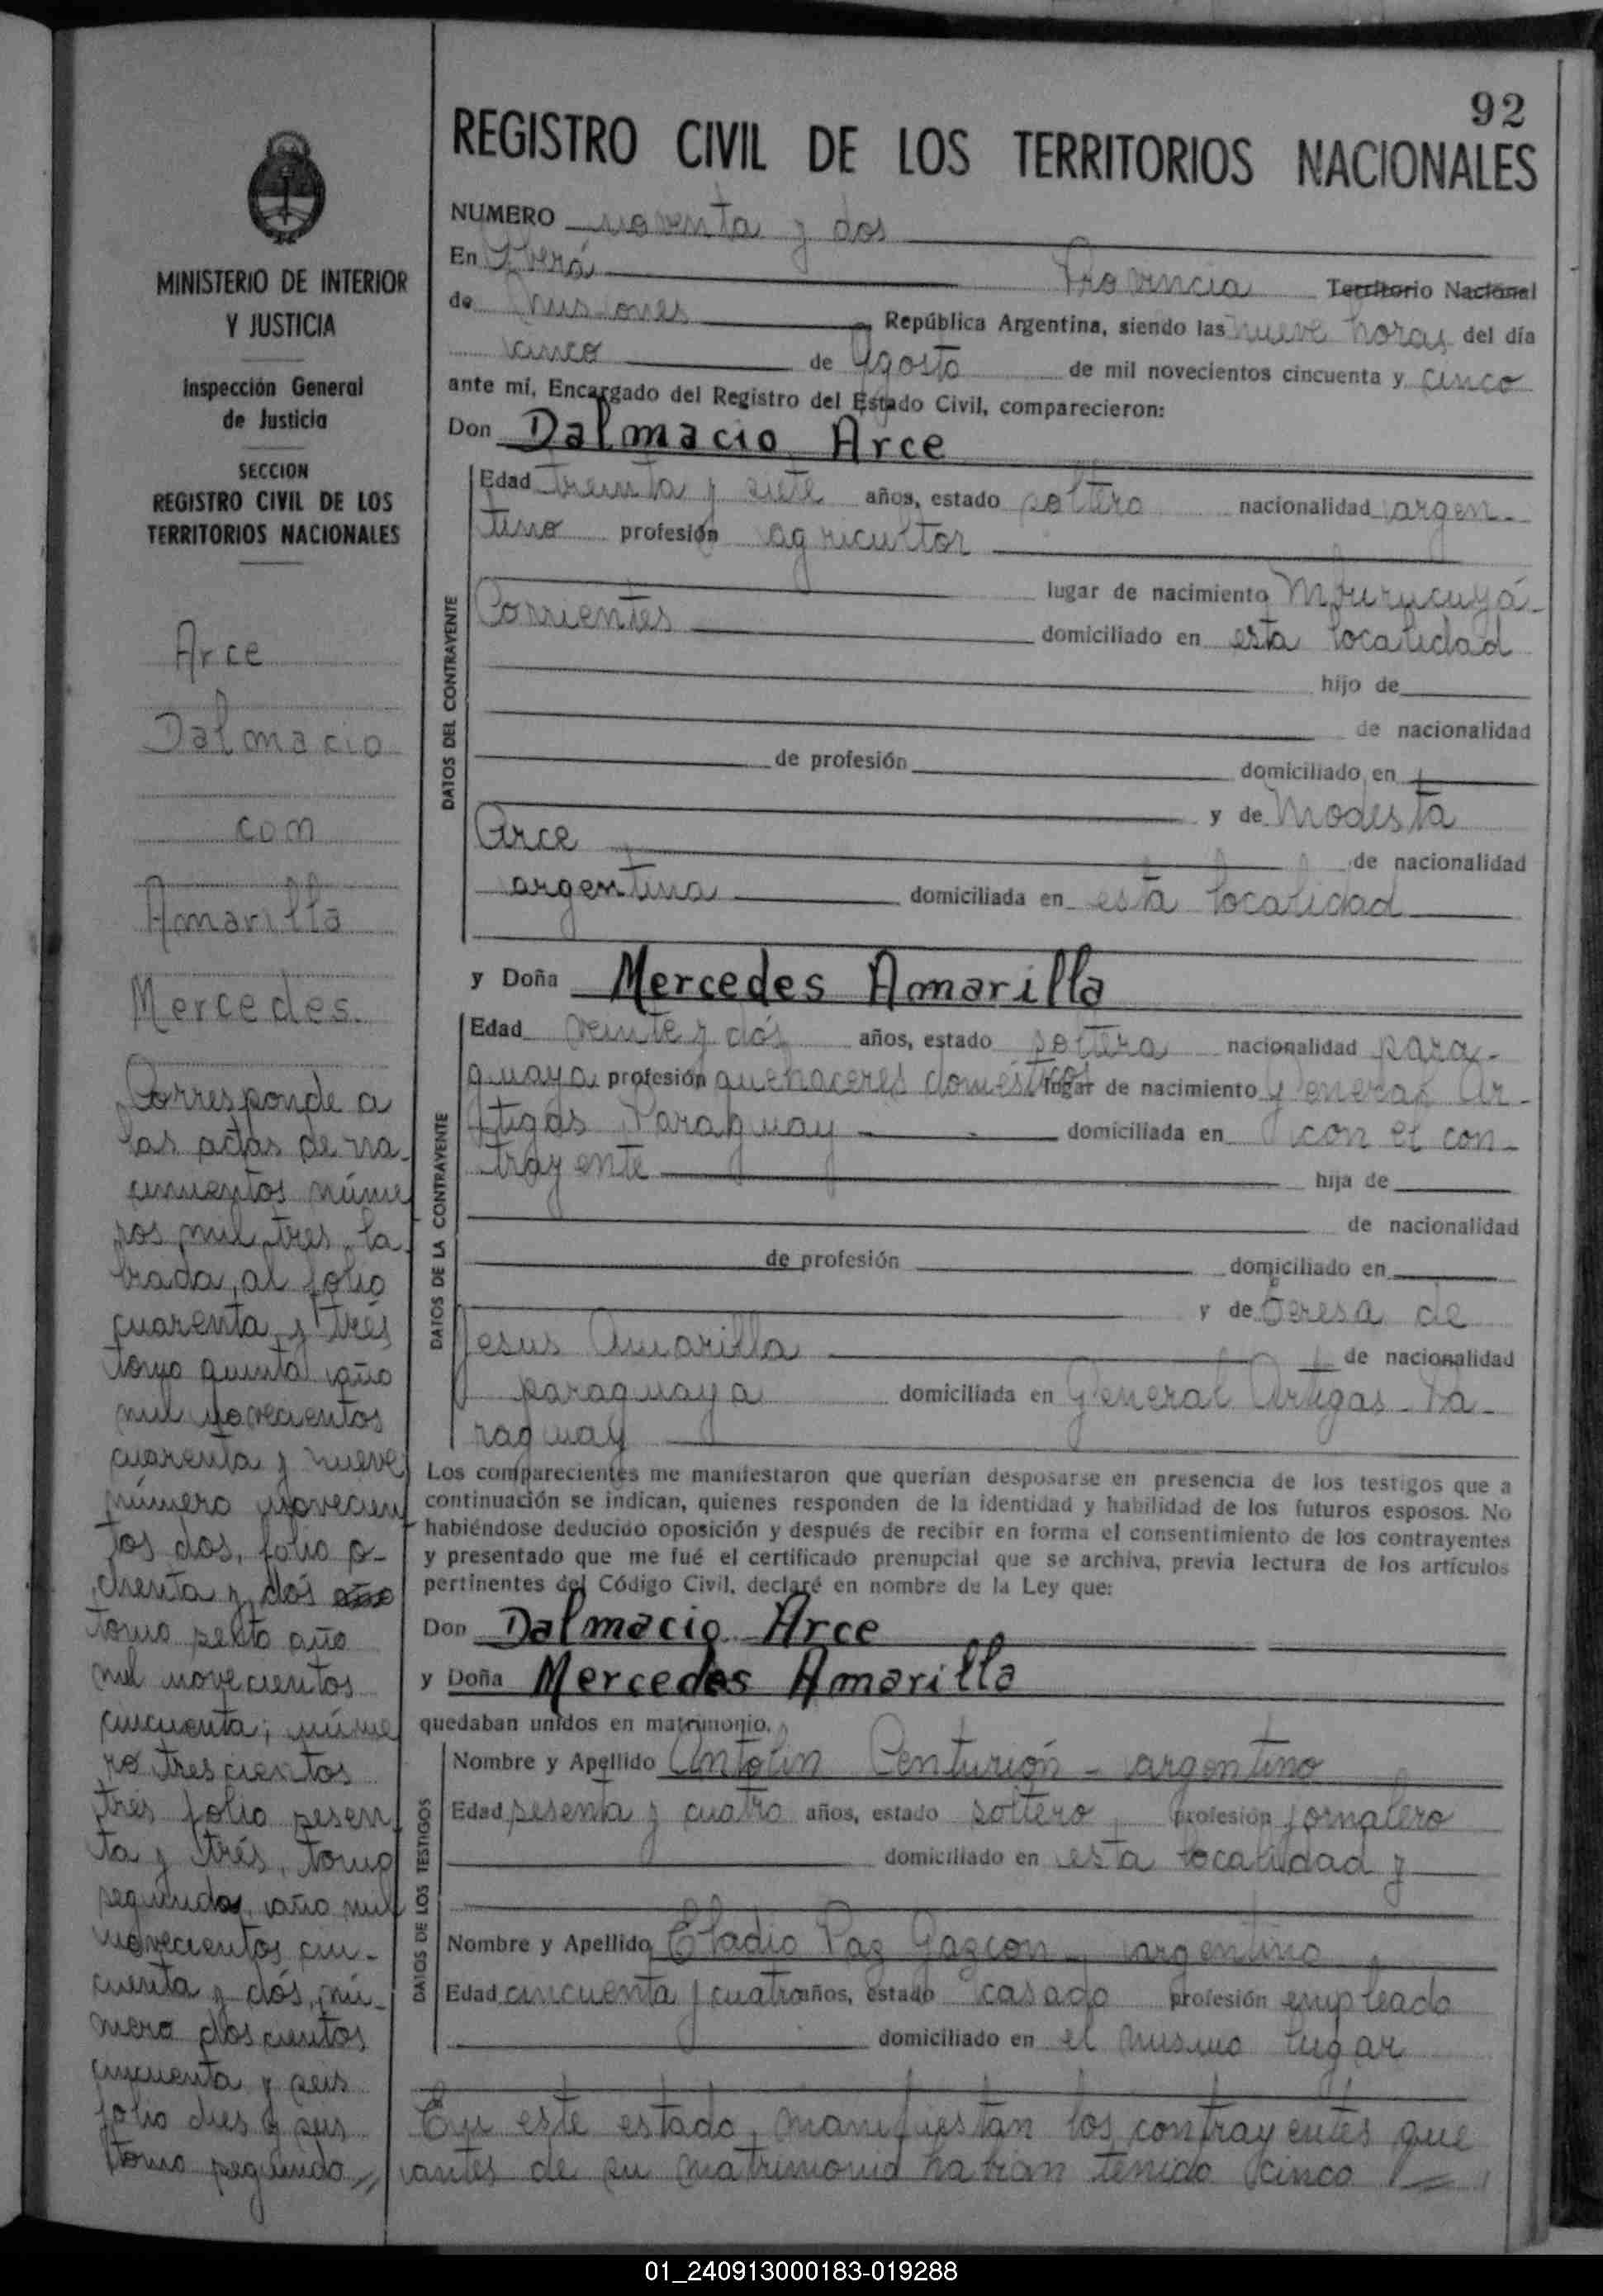 92
REGISTRO CIVIL DE LOS TERRITORIOS NACIONALES
MINISTERIO DE INTERIOR
Y JUSTICIA
Inspección General
de Justicia
SECCION
REGISTRO CIVIL DE LOS
TERRITORIOS NACIONALES
Arce
Dalmacio
con
Amarilla
Mercedes.
Corresponde a
las actas de na-
cimientos núme
ros mil tres, la
brada, al folio
cuarenta y trés
tomo quinto año
mil novecientos
cuarenta y nueve
número novecien
tos dos, folio o-
chenta y dós año
tomo sexto año
mil novecientos
cincuenta; núme
ro trescientos
tres folio sesen
ta y trés, tomo
segundo, año mil
novecientos cin-
cuenta y dós, nú-
mero doscientos
cincuenta y seis
folio dies y seis
tomo segundo //
NUMERO noventa y dos
En Iberá Provincia Territorio Nacional
de Misiones República Argentina, siendo las nueve horas del día
cinco de Agosto de mil novecientos cincuenta y cinco
ante mí, Encargado del Registro del Estado Civil, comparecieron:
Don Dalmacio Arce
DATOS DEL CONTRAYENTE
Edad treinta y siete años, estado soltero nacionalidad argen-
tino profesión agricultor
lugar de nacimiento Mburucuyá-
Corrientes domiciliado en esta localidad
hijo de
de nacionalidad
de profesión domiciliado en
y de Modesta
Arce de nacionalidad
argentina domiciliada en esta localidad
y Doña Mercedes Amarilla
DATOS DE LA CONTRAYENTE
Edad veinte y dós años, estado soltera nacionalidad para-
guaya profesión quehaceres domésticos lugar de nacimiento General Ar-
tigas Paraguay domiciliada en con el con-
trayente hija de
de nacionalidad
de profesión domiciliado en
y de Teresa de
Jesus Amarilla de nacionalidad
paraguaya domiciliada en General Artigas Pa-
raguay
Los comparecientes me manifestaron que querían desposarse en presencia de los testigos que a
continuación se indican, quienes responden de la identidad y habilidad de los futuros esposos. No
habiéndose deducido oposición y después de recibir en forma el consentimiento de los contrayentes
y presentado que me fué el certificado prenupcial que se archiva, previa lectura de los artículos
pertinentes del Código Civil, declaré en nombre de la Ley que:
Don Dalmacio Arce
y Doña Mercedes Amarilla
quedaban unidos en matrimonio.
DATOS DE LOS TESTIGOS
Nombre y Apellido Antolin Centurión - argentino
Edad sesenta y cuatro años, estado soltero profesión jornalero
domiciliado en esta localidad y
Nombre y Apellido Eladio Paz Gazcon - argentino
Edad cincuenta y cuatro años, estado casado profesión empleado
domiciliado en el mismo lugar
En este estado, manifiestan los contrayentes que
antes de su matrimonio habían tenido cinco
01_240913000183-019288